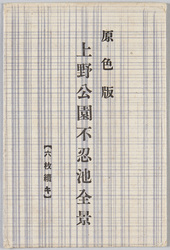 原色版
上野公園不忍池全景
【六枚續キ】